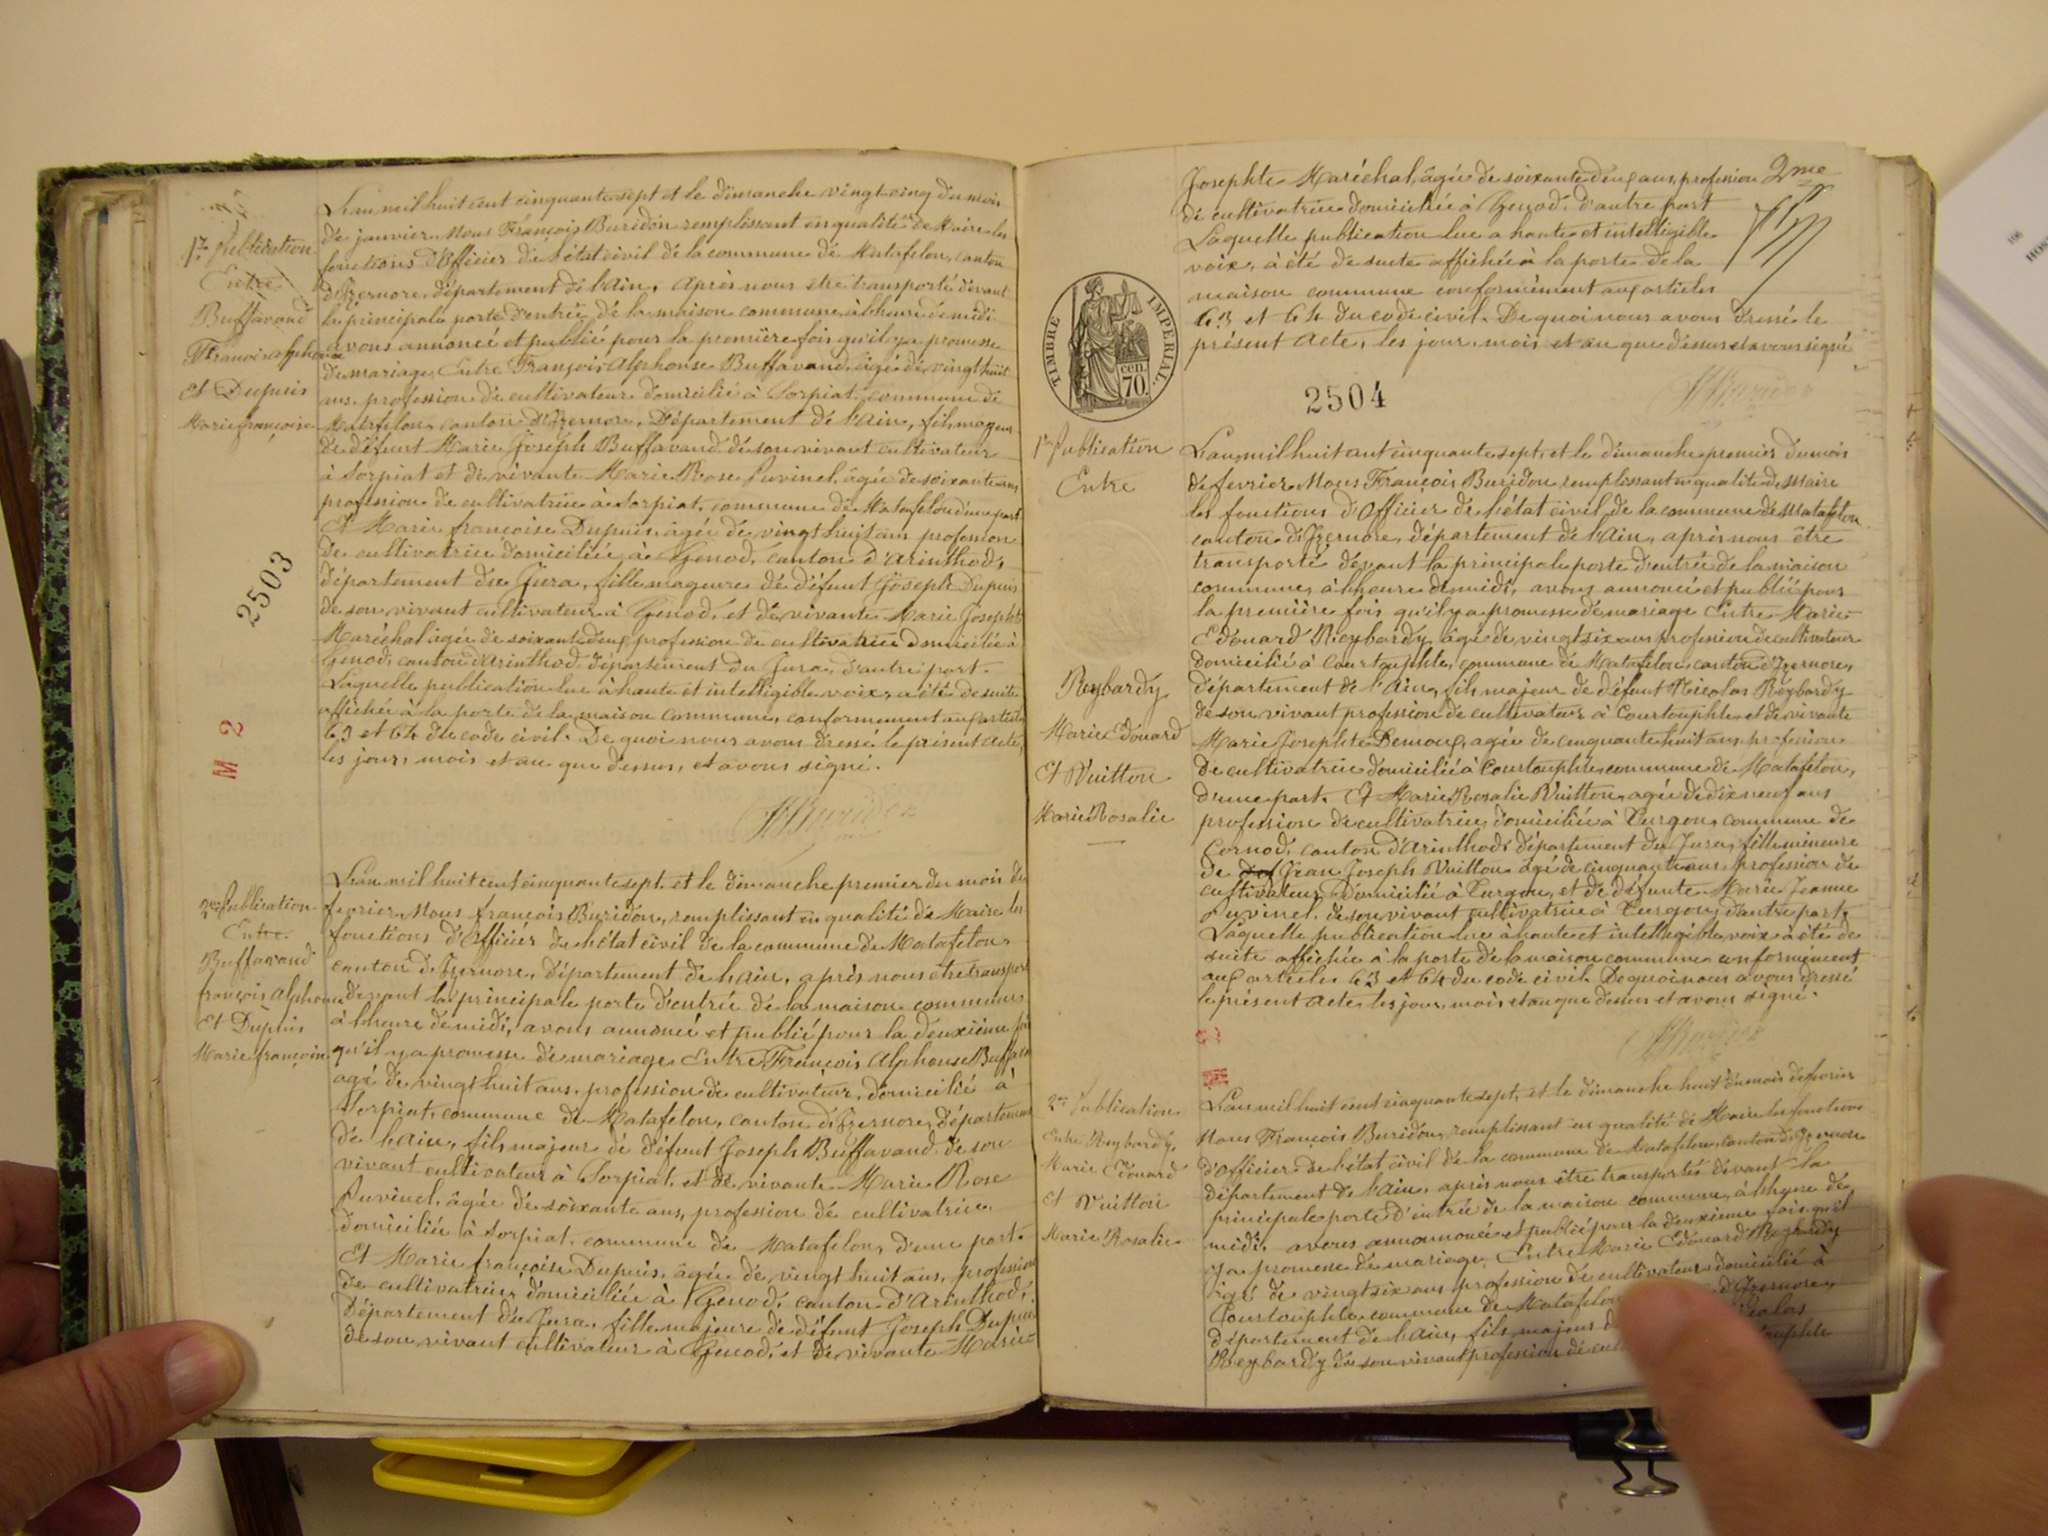 1re Publication
Entre
Buffavand
François alphonse
Et Dupuis
Marie françoise
L'an mil huit cent cinquante sept et le dimanche vingt cinq du mois
de janvier. Nous François Buridon remplissant en qualité de Maire les
fonctions d'officier de l'état civil de la commune de Matafelon, canton
d'Izernore, département de l'ain, après nous être transporté devant
la principale porte d'entrée de la maison commune, à l'heure de midi
avons annoncé et publié pour la première fois qu'il y a promesse
de mariage, Entre François Alphonse Buffavand, âgé de vingt huit
ans, profession de cultivateur domicilié à Sorpiat, commune de
Matafelon, canton d'Izernore, Département de l'Ain, fils majeur
de défunt Marie Joseph Buffavand de son vivant cultivateur
à Sorpiat et de vivante Marie Rose Juvinel, âgée de soixante ans
profession de cultivatrice à Sorpiat, commune de Matafelon d'une part
Et Marie françoise Dupuis, âgée de vingt huit ans profession
de cultivatrice domiciliée à Genod, canton d'Arinthod,
département du Jura, fille mageure de défunt Joseph Dupuis
de son vivant cultivateur à Genod, et de vivante Marie Josephte
Maréchal âgée de soixante deux, profession de cultivatrice Domiciliée à
Genod, canton d'Arinthod Département du Jura, d'autre part.
Laquelle publication lue à haute et intelligible voix, a été de suite
affichée à la porte de la maison commune, conformément aux articles
63 et 64 du code civil. De quoi nous avons dressé le présent acte,
les jour, mois et an que dessus, et avons signé.
2503
M 2
2me Publication
Entre
Buffavand
françois alphonse
Et Dupuis
Marie françoise
L'an mil huit cent cinquante sept et le dimanche premier du mois de
fevrier, Nous françois Buridon, remplissant en qualité de Maire les
fonctions d'officier de l'état civil de la commune de Matafelon,
canton d'Izernore, département de l'ain, après nous être transporté
devant la principale porte d'entrée de la maison commune,
à l'heure de midi, avons annoncé et publié pour la deuxième fois
qu'il y a promesse de mariage Entre François Alphonse Buffavand
agé de vingt huit ans, profession de cultivateur, domicilié à
Sorpiat, commune de Matafelon, canton d'Izernore, département
de l'ain, fils majeur de défunt Joseph Buffavand de son
vivant cultivateur à Sorpiat et de vivante Marie Rose
Juvinel, âgée de soixante ans, profession de cultivatrice,
domiciliée à Sorpiat, commune de Matafelon, d'une part.
Et Marie françoise Dupuis, âgée de vingt huit ans, profession
de cultivatrice domiciliée à Genod, canton d'Arinthod,
Département du Jura, fille majeure de défunt Joseph Dupuis
de son vivant cultivateur à Genod, et de vivante Marie
2me
Josephte Maréchal, âgée de soixante deux ans, profession
de cultivatrice domiciliée à Genod, d'autre part
Laquelle publication lue a haute et intelligible
voix, à été de suite affichée à la porte de la
maison commune conformément aux articles
63 et 64 du code civil. De quoi nous avons dressé le
présent acte, les jour, mois et an que dessus et avons signé
TIMBRE IMPERIAL.
70. cen.
2504
1re Publication
Entre
Reybardy
Marie Edouard
Et Vuitton
Marie Rosalie
L'an mil huit cent cinquante sept, et le dimanche premier du mois
de fevrier, Nous François Buridon, remplissant en qualité de Maire
les fonctions d'officier de l'état civil de la commune de Matafelon
canton d'Izernore, département de l'ain, après nous être
transporté devant la principale porte d'entrée de la maison
commune, à l'heure de midi, avons annoncé et publié pour
la première fois qu'il y a promesse de mariage Entre Marie
Edouard Reybardy, âgé de vingt six ans profession de cultivateur
domicilié à Courtouphle, commune de Matafelon, canton d'Izernore,
département de l'Ain, fils majeur de défunt Nicolas Reybardy
de son vivant profession de cultivateur à Courtouphle, et de vivante
Marie Josephte agée de cinquante huit ans profession
de cultivatrice domiciliée à Courtouphle commune de Matafelon,
d'une part. Et Marie Rosalie Vuitton, agée de dix neuf ans
profession de cultivatrice domiciliée à Turgon, commune de
Cornod, canton d'Arinthod, département du Jura, fille mineure
de Jean Joseph Vuitton âgé de cinquante ans, profession de
cultivateur, domicilié à Turgon, et de défunte Marie Jeanne
Juvinel, de son vivant cultivatrice à Turgon, d'autre part,
Laquelle publication lue à haute et intelligible voix a été de
suite affichée à la porte de la maison commune conformément
aux articles 63 et 64 du code civil. De quoi nous avons dressé
le présent acte, les jour, mois et an que dessus et avons signé.
2me Publication
Entre Reybardy
Marie Edouard
Et Vuitton
Marie Rosalie
L'an mil huit cent cinquante sept, et le dimanche huit du mois de fevrier
Nous François Buridon, remplissant en qualité de Maire les fonctions
d'officier de l'état civil de la commune de Matafelon, canton d'Izernore
département de l'ain, après nous être transporté devant la
principale porte d'entrée de la maison commune, à l'heure de
midi, avons annoncé et publié pour la deuxième fois qu'il
y a promesse de mariage, Entre Marie Edouard Reybardy
âgé de vingt six ans profession de cultivateur domicilié à
Courtouphle commune de Matafelon d'Izernore,
département de l'ain, fils majeur Nicolas
Reybardy de son vivant profession de